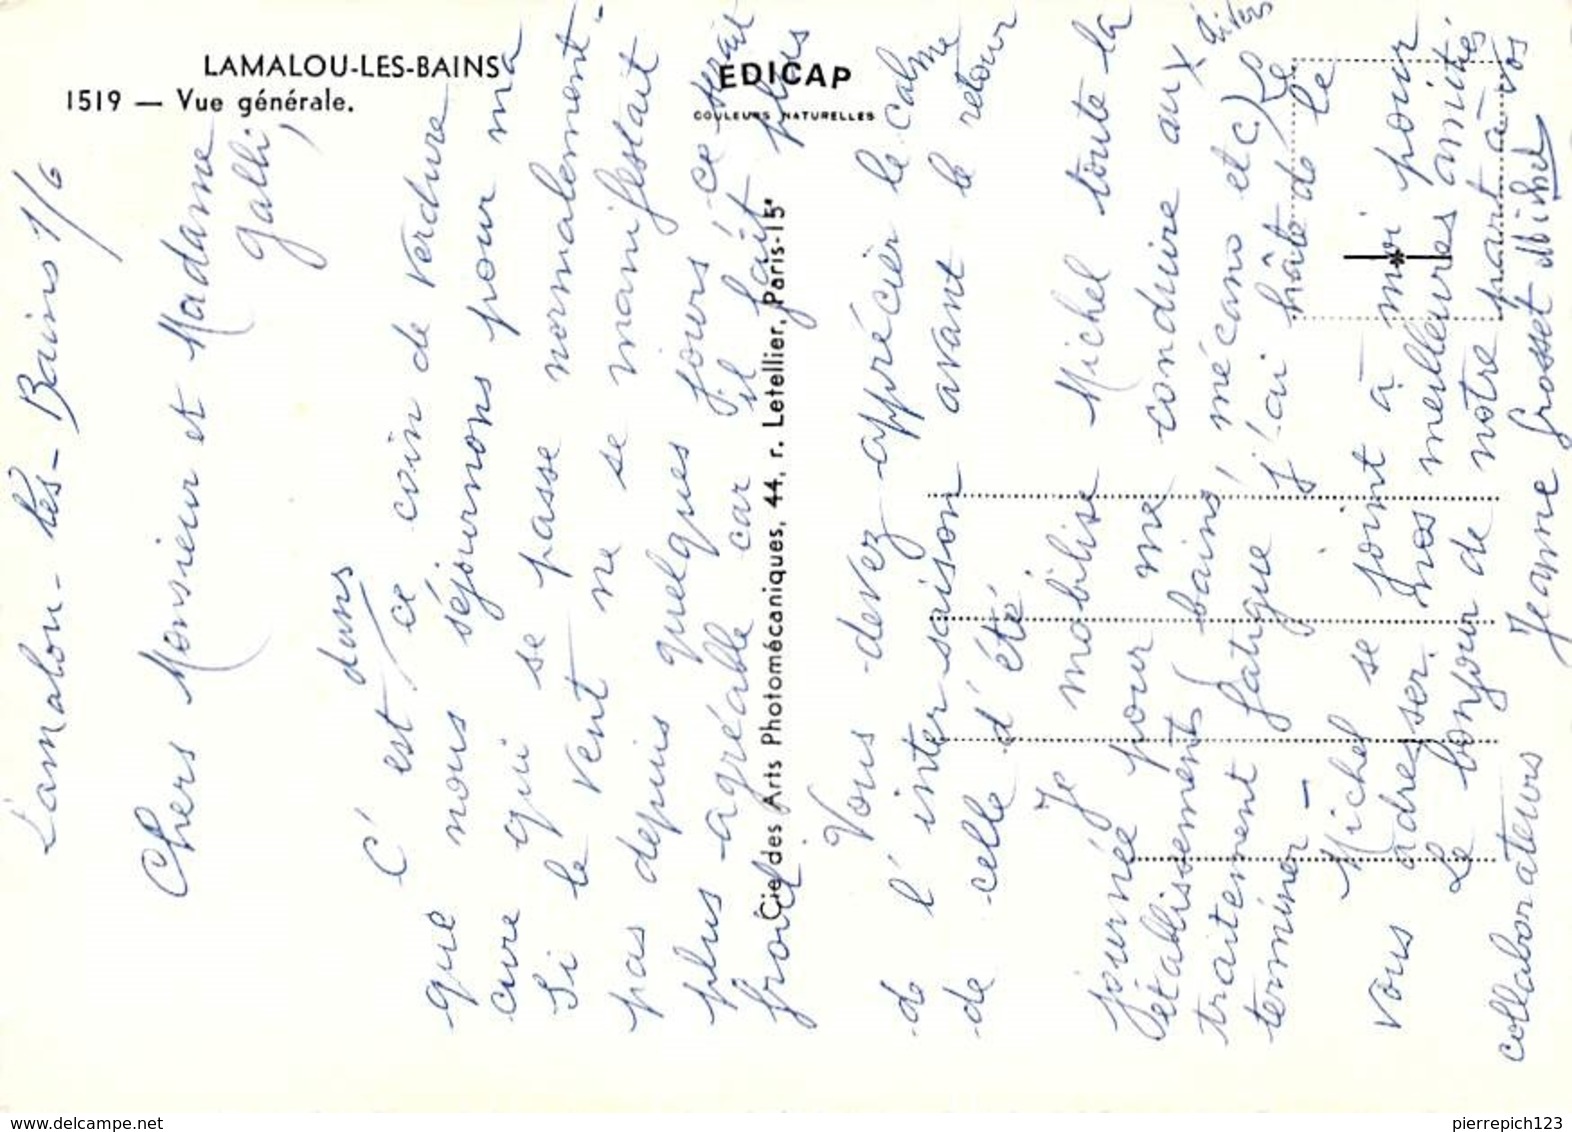 LAMALOU-LES-BAINS
1519 — Vue générale.
EDICAP
COULEURS NATURELLES
Cie des Arts Photomécaniques, 44, r. Letellier, Paris-15e
Lamalou-les-Bains 1/6
Chers Monsieur et Madame
Galli,
C'est dans ce coin de verdure
que nous séjournons pour ma
cure qui se passe normalement.
Si le vent ne se manifestait
pas depuis quelques jours ce serait
plus agréable car il fait plus
froid.
Vous devez apprécier le calme
de l'inter saison avant le retour
de celle d'été.
Je mobilise Michel toute la
journée pour me conduire aux divers
établissements (bains, mécano etc.) Le
traitement fatigue j'ai hâte de le
terminer —
Michel se joint à moi pour
vous adresser nos meilleures amitiés
Le bonjour de notre part à vos
collaborateurs
Jeanne Grosset Michel
www.delcampe.net
pierrepich123